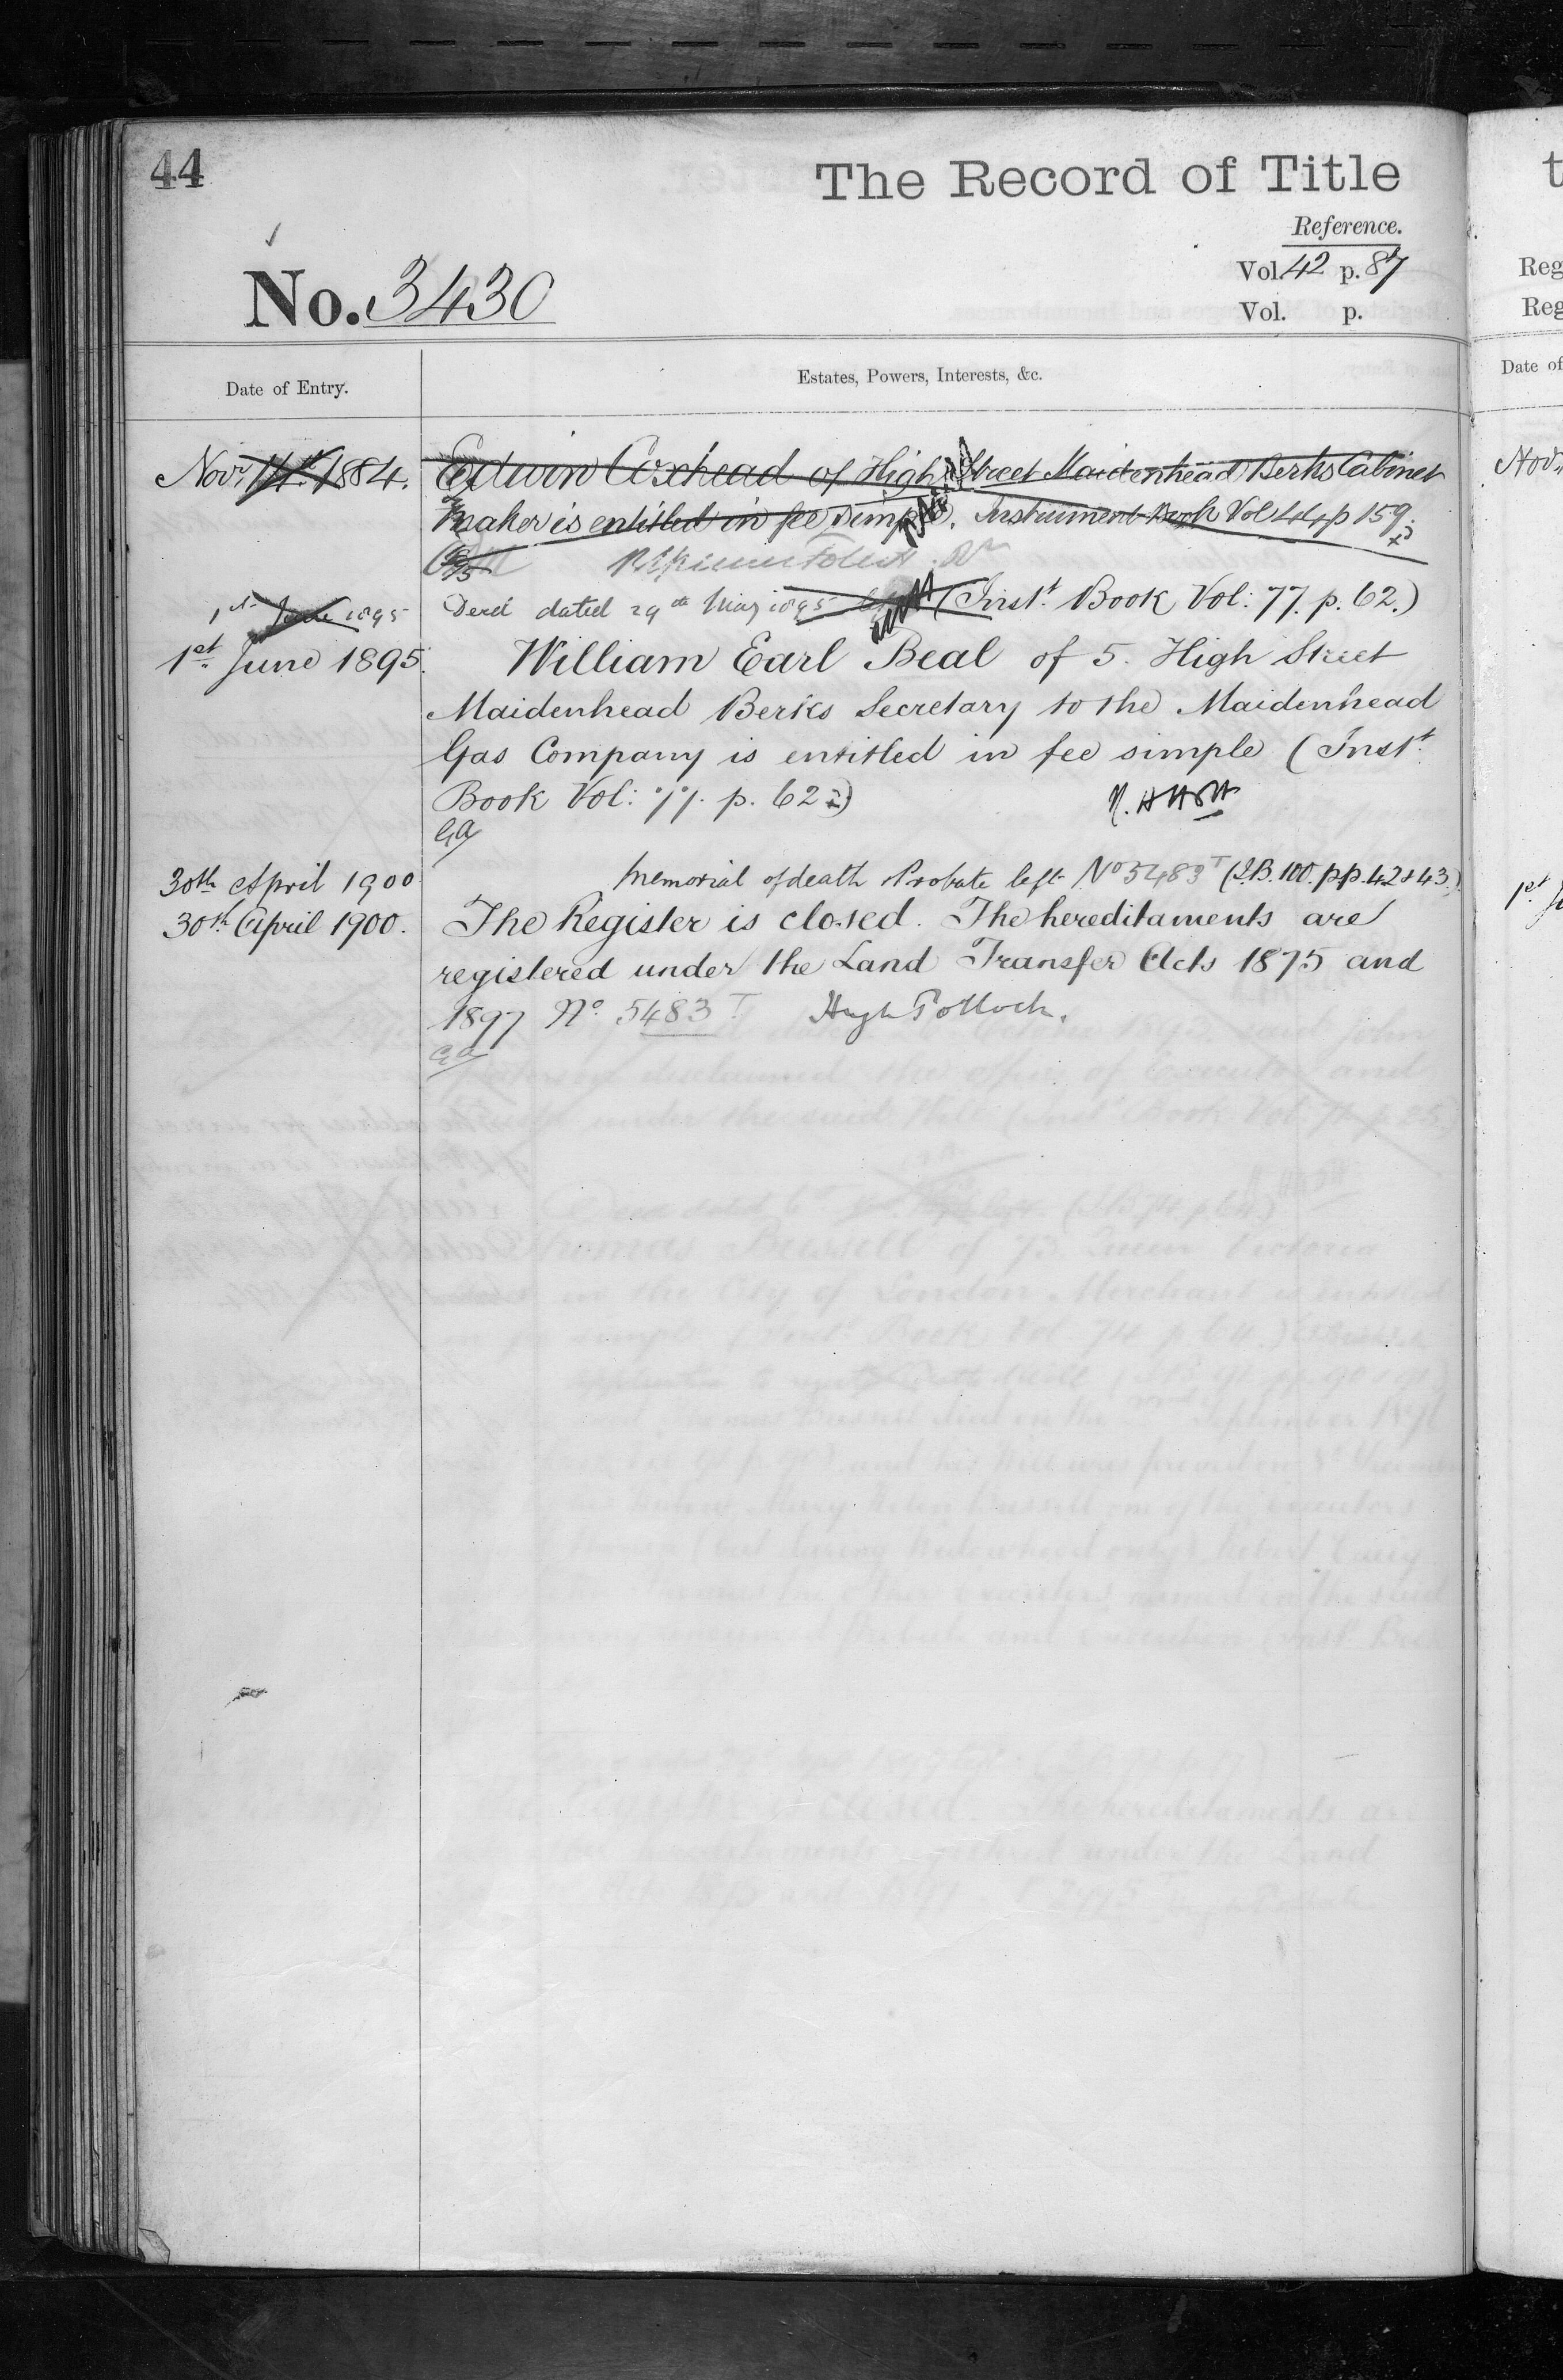 44
The Record of Title
Reference.
Vol. 42 p. 87
Vol. p.
No. 3430
Date of Entry.
Estates, Powers, Interests, &c.
Novr. 14th 1884.
Edwin Coxhead of High Street Maidenhead Berks Cabinet
Maker is entitled in fee simple. Instrument Book Vol 44 p 159.
1st June 1895
Deed dated 29th May 1895 (Inst. Book Vol: 77. p. 62.)
1st June 1895.
William Earl Beal of 5. High Street
Maidenhead Berks Secretary to the Maidenhead
Gas Company is entitled in fee simple (Inst.
Book Vol: 77. p. 62)
30th April 1900
Memorial of death Probate left No 5483 T (I.B. 100. pp. 42 & 43.)
30th April 1900.
The Register is closed. The hereditaments are
registered under the Land Transfer Acts 1875 and
1897 No. 5483 T Hugh Pollock.
t
Reg
Reg
Date of
Nov.
1st Ju